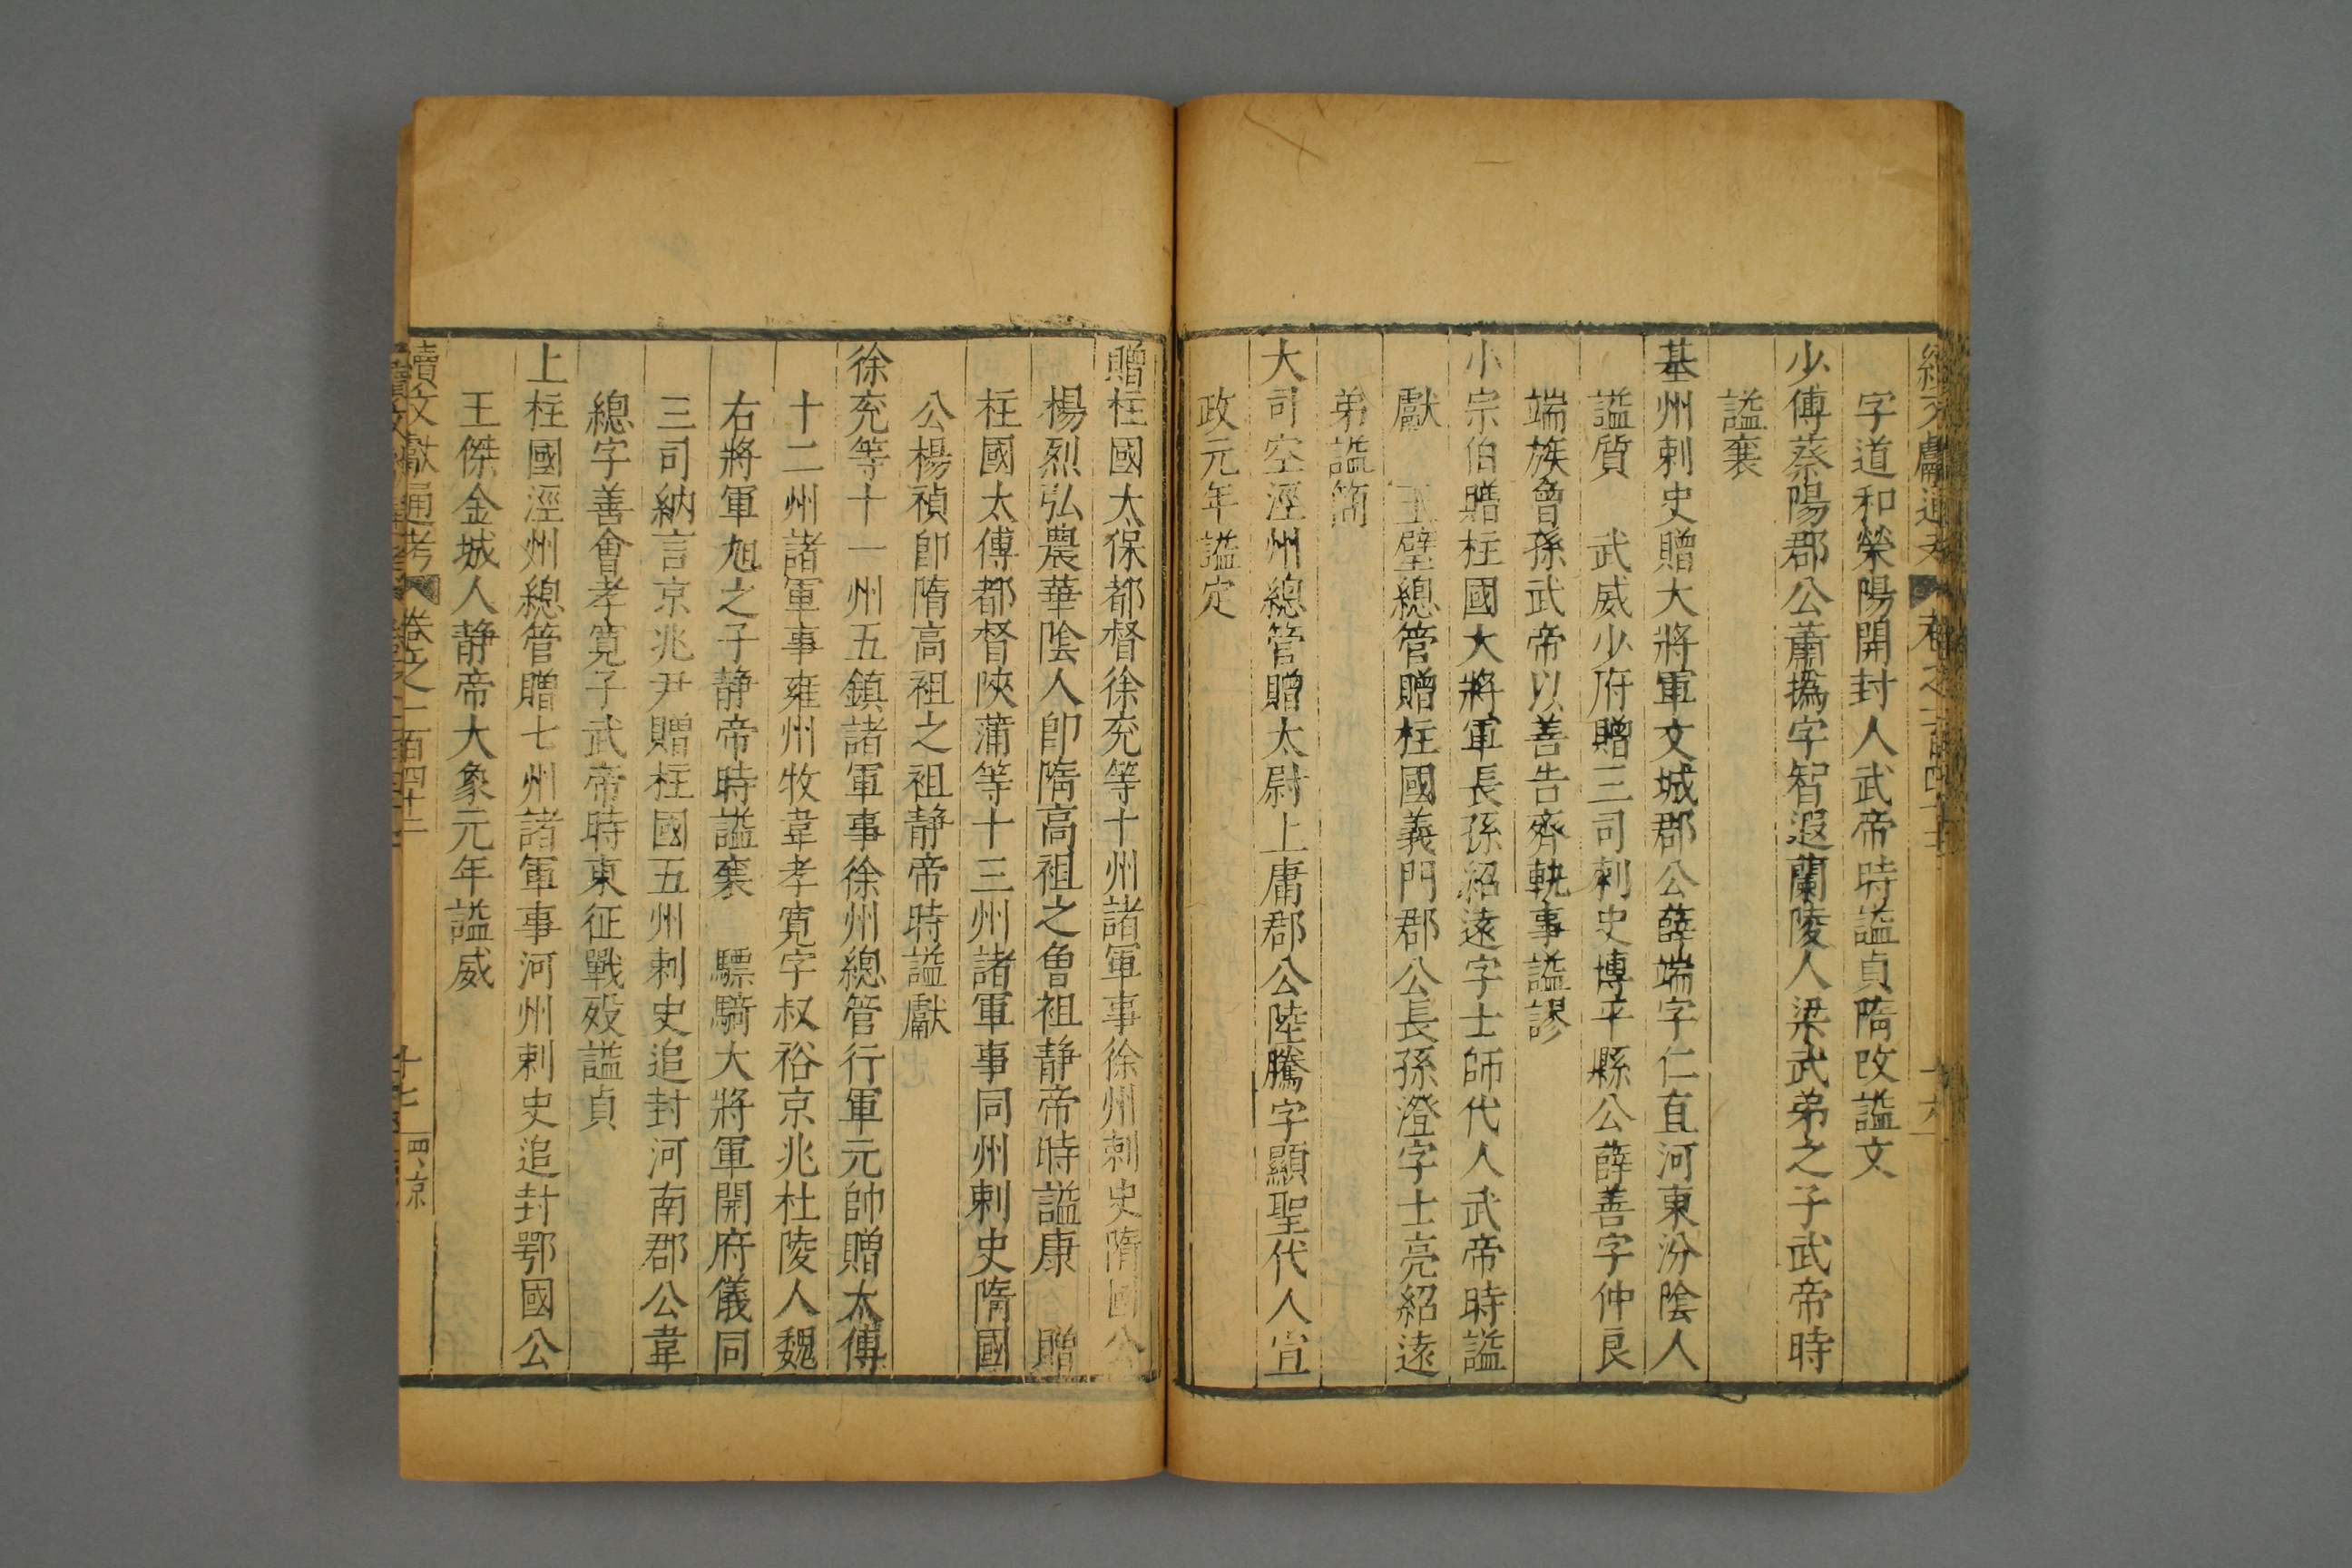 字道和榮陽開封人武帝時謚貞隋改謚文
少傅蔡陽郡公蕭撝字智遐蘭陵人梁武弟之子武帝時
謚襄
基州刺史贈大將軍文城郡公薛端字仁直河東汾陰人
謚質 武威少府贈三司刺史博平縣公薛善字仲良
端族會孫武帝以善告齊軌事謚謬
小宗伯贈柱國大將軍長孫紹逺字士師代人武帝時謚
獻 玉壁總管贈柱國義門郡公長孫澄字士亮紹逺
弟謚簡
大司空涇州總管贈太尉上庸郡公陸騰字顯聖代人宣
政元年謚定
贈柱國太保都督徐兖等十州諸軍事徐州刺史隋國公
楊烈弘農華陰人卽隋高祖之魯祖静帝時謚康 贈
柱國太傅都督陝蒲等十三州諸軍事同州刺史隋國
公楊禎卽隋高祖之祖静帝時謚獻
徐兖等十一州五鎮諸軍事徐州總管行軍元帥贈太傅
十二州諸軍事雍州牧韋孝寛字叔裕京兆杜陵人魏
右將軍旭之子静帝時謚襄 驃騎大將軍開府儀同
三司納言京兆尹贈柱國五州刺史追封河南郡公韋
總字善會孝寛子武帝時東征戰殁謚貞
上柱國涇州總管贈七州諸軍事河州刺史追封鄂國公
王傑金城人静帝大象元年謚威
續文獻通考 卷之一百四十三 十七 四京